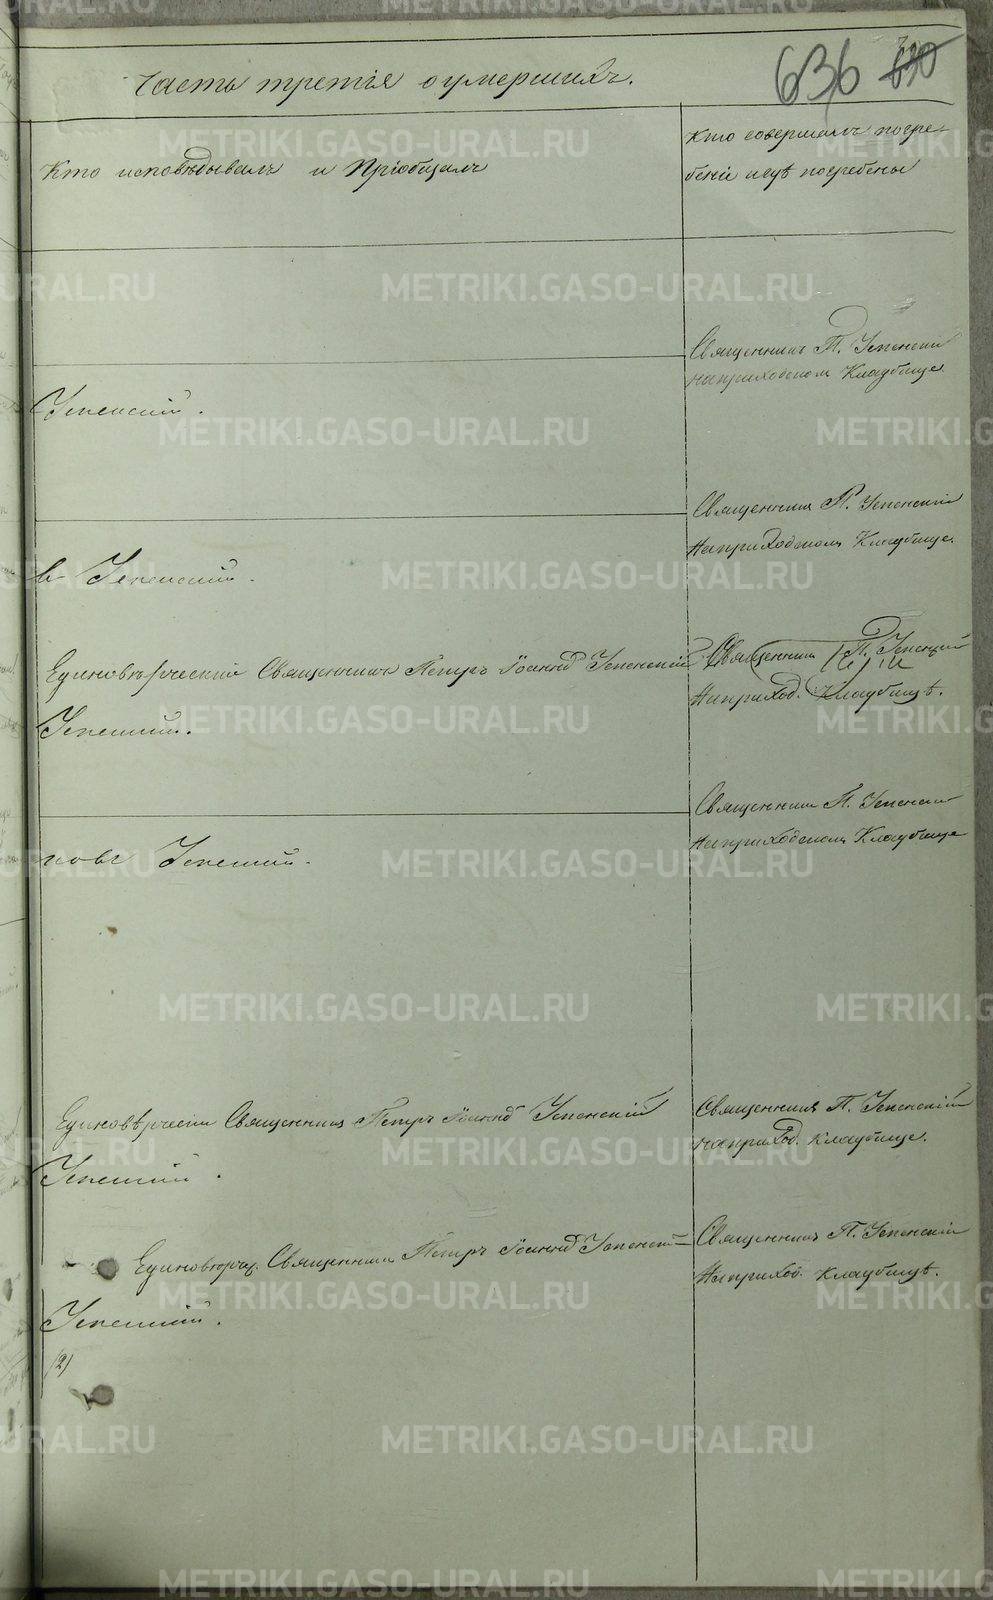 Часть третія о умершихъ.
636 630
Кто исповѣдывалъ и Пріобщалъ
Кто совершалъ погре-
беніе и гдѣ погребены
Священникъ П. Успенскій
на приходском Кладбище
Успенскій.
Священник П. Успенскій
На приходском Кладбище.
в Успенский.
Единовѣрческий Священник Петръ Іоанно Успенскій
Священник П. Успенский
На приход. Кладбищѣ.
Успенский.
Священник П. Успенский
На приходском Кладбище
повъ Успений.
Единовѣрчески Священник Петръ Іоанно Успенскій
Священник П. Успенскій
на приход. кладбище.
Успенский.
Единовѣрчес. Священник Петръ Іоанно Успенскій
Священник П. Успенскій
На приход. кладбищѣ.
Успенскій.
(2)
METRIKI.GASO-URAL.RU